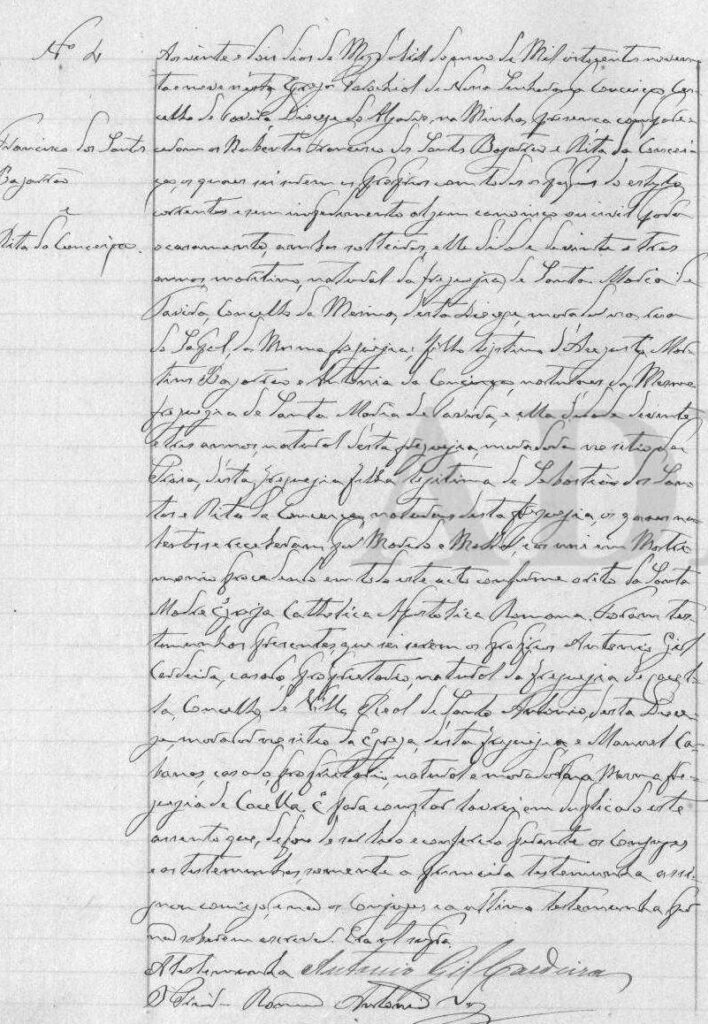 Nº 4
Francisco dos Santos
Bajarrão
e
Rita da Conceição.
Aos vinte e dois dias do Mez de do anno de Mil oitocentos noven
ta e nove nesta Egreja Parochial de Nossa Senhora da Conceição Con
celho de Tavira Diocese do Algarve, na Minha presença compare
ceram os Nubentes Francisco dos Santos Bajarrão e Rita da Concei
ção, os quaes sei serem os proprios com todos os papeis do estylo
correntes e sem impedimento algum canonico ou civil para
o casamento, ambos solteiros, elle de idade de vinte e tres
annos maritimo, natural da freguezia de Santa Maria de
Tavira, Concelho da Mesma, desta Diocese, morador na rua
da mesma freguezia, filho legitimo d'Augusto Mar
tins Bajarrão e Antonia da Conceição, naturaes da Mesma
freguezia de Santa Maria de Tavira, e ella de idade de vinte
e tres annos, natural desta freguezia, moradora no sitio da
desta freguezia filha legitima de Sebastião dos San
tos e Rita da Conceição, naturaes desta freguezia, os quaes nu
bentes se receberam por Marido e Mulher, e os uni em Matri
monio procedendo em todo este acto conforme o rito da Santa
Madre Egreja Catholica Apostolica Romana. Foram tes
temunhas presentes, que sei serem os proprios Antonio Gil
Cardeira, casado, Proprietario, natural da freguezia de Cacel
la, Concelho de Villa Real de Santo Antonio, desta Dioce
se, morador no sitio da Egreja, desta freguezia, e Manoel Ca
casado, proprietario, natural e morador na Mesma fre
guezia de Cacella. E para constar lavrei em duplicado este
assento que, depois de ser lido e conferido perante os conjuges
e as testemunhas somente a primeira testemunha assi
gnou comigo, e não os conjuges e a ultima testemunha por
não saberem escrever. Era ut supra.
A testemunha Antonio Gil Cardeira
O Antonio Vaz